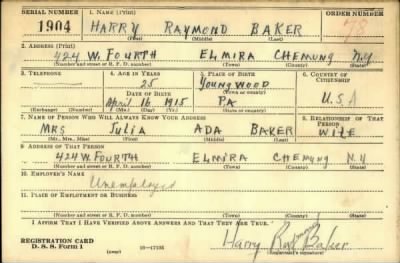 SERIAL NUMBER 1. NAME (Print) ORDER NUMBER
1904 HARRY RAYMOND BAKER
(First) (Middle) (Last)
2. ADDRESS (Print)
424 W. FOURTH ELMIRA CHEMUNG N.Y
(Number and street or R. F. D. number) (Town) (County) (State)
3. TELEPHONE 4. AGE IN YEARS 5. PLACE OF BIRTH 6. COUNTRY OF CITIZENSHIP
25 YOUNGWOOD
DATE OF BIRTH (Town or county)
April 16 1915 PA U.S.A
(Exchange) (Number) (Mo.) (Day) (Yr.) (State or country)
7. NAME OF PERSON WHO WILL ALWAYS KNOW YOUR ADDRESS 8. RELATIONSHIP OF THAT PERSON
MRS JULIA ADA BAKER WIFE
(Mr., Mrs., Miss) (First) (Middle) (Last)
9. ADDRESS OF THAT PERSON
424 W. FOURTH ELMIRA CHEMUNG N.Y
(Number and street or R. F. D. number) (Town) (County) (State)
10. EMPLOYER'S NAME
Unemployed
11. PLACE OF EMPLOYMENT OR BUSINESS
(Number and street or R. F. D. number) (Town) (County) (State)
I AFFIRM THAT I HAVE VERIFIED ABOVE ANSWERS AND THAT THEY ARE TRUE.
REGISTRATION CARD
D. S. S. Form 1 (over) 16—17105 Harry Baker